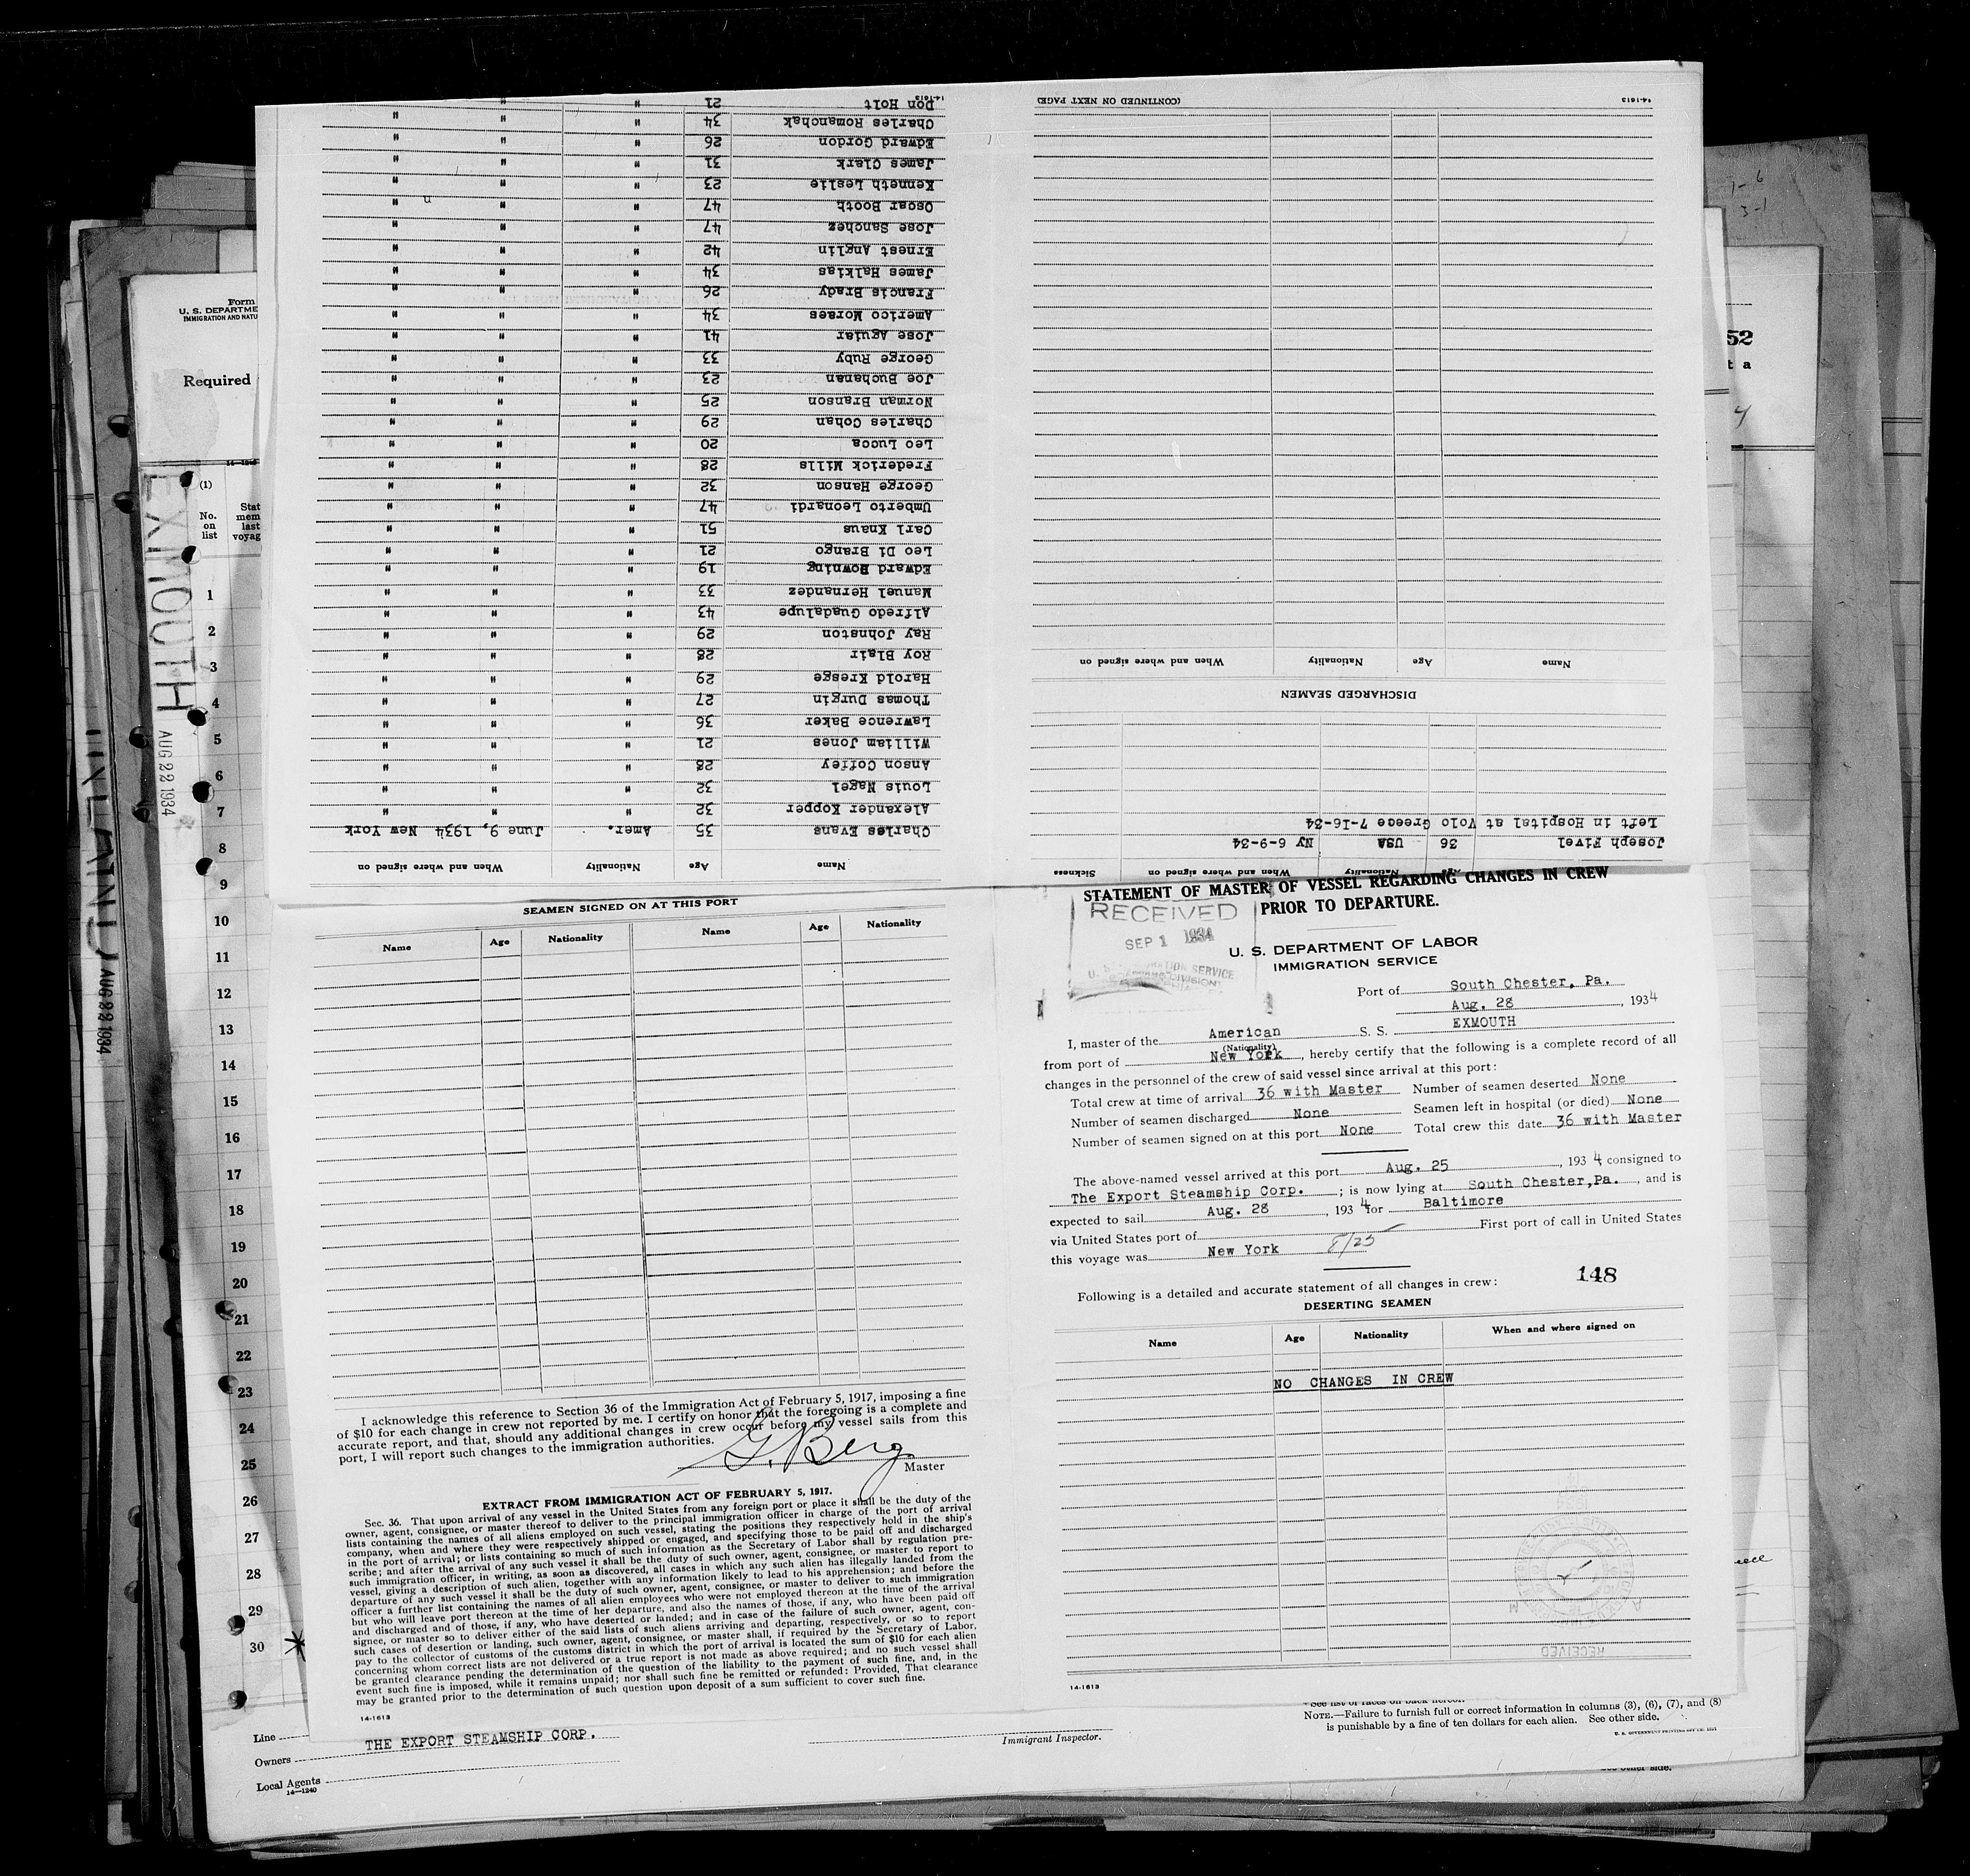 Form
U. S. DEPARTME
IMMIGRATION AND NATU
Required
14-1240
(1)
No.
on
list
Stat
mem
last
voyag
1
2
3
4
5
6
7
8
9
10
11
12
13
14
15
16
17
18
19
20
21
22
23
24
25
26
27
28
29
30
EXMOUTH
AUG 22 1934
INLAND
AUG 22 1934
52
t a
1-6
3-1
Name Age Nationality When and where signed on
Charles Evans 35 Amer. June 9, 1934 New York
Alexander Kopper 32 " " "
Louis Nagel 32 " " "
Anson Coffey 28 " " "
William Jones 21 " " "
Lawrence Baker 36 " " "
Thomas Durgin 27 " " "
Harold Kresge 29 " " "
Roy Blair 28 " " "
Ray Johnston 29 " " "
Alfredo Guadalupe 43 " " "
Manuel Hernandez 33 " " "
Edward Downing 19 " " "
Leo Di Brango 21 " " "
Carl Knaus 51 " " "
Umberto Leonardi 47 " " "
George Hanson 32 " " "
Frederick Mills 28 " " "
Leo Lucca 20 " " "
Charles Cohan 29 " " "
Norman Branson 25 " " "
Joe Buchanan 23 " " "
George Ruby 33 " " "
Jose Aguiar 41 " " "
Americo Moraes 34 " " "
Francis Brady 26 " " "
James Halkias 34 " " "
Ernest Anglin 42 " " "
Jose Sanchez 47 " " "
Oscar Booth 47 " " "
Kenneth Leslie 23 " " "
James Clark 31 " " "
Edward Gordon 26 " " "
Charles Romanchak 34 " " "
Don Holt 21 " "
14-1613
Age Nationality When and where signed on Sickness
Joseph Fivel 36 USA NY 6-9-34
Left in Hospital at Volo Greece 7-16-34
DISCHARGED SEAMEN
Name Age Nationality When and where signed on
14-1613 (CONTINUED ON NEXT PAGE)
SEAMEN SIGNED ON AT THIS PORT
Name Age Nationality Name Age Nationality
I acknowledge this reference to Section 36 of the Immigration Act of February 5, 1917, imposing a fine
of $10 for each change in crew not reported by me. I certify on honor that the foregoing is a complete and
accurate report, and that, should any additional changes in crew occur before my vessel sails from this
port, I will report such changes to the immigration authorities.
G. Berg
Master
EXTRACT FROM IMMIGRATION ACT OF FEBRUARY 5, 1917.
Sec. 36. That upon arrival of any vessel in the United States from any foreign port or place it shall be the duty of the
owner, agent, consignee, or master thereof to deliver to the principal immigration officer in charge of the port of arrival
lists containing the names of all aliens employed on such vessel, stating the positions they respectively hold in the ship's
company, when and where they were respectively shipped or engaged, and specifying those to be paid off and discharged
in the port of arrival; or lists containing so much of such information as the Secretary of Labor shall by regulation pre-
scribe; and after the arrival of any such vessel it shall be the duty of such owner, agent, consignee, or master to report to
such immigration officer, in writing, as soon as discovered, all cases in which any such alien has illegally landed from the
vessel, giving a description of such alien, together with any information likely to lead to his apprehension; and before the
departure of any such vessel it shall be the duty of such owner, agent, consignee, or master to deliver to such immigration
officer a further list containing the names of all alien employees who were not employed thereon at the time of the arrival
but who will leave port thereon at the time of her departure, and also the names of those, if any, who have been paid off
and discharged and of those, if any, who have deserted or landed; and in case of the failure of such owner, agent, con-
signee, or master so to deliver either of the said lists of such aliens arriving and departing, respectively, or so to report
such cases of desertion or landing, such owner, agent, consignee, or master shall, if required by the Secretary of Labor,
pay to the collector of customs of the customs district in which the port of arrival is located the sum of $10 for each alien
concerning whom correct lists are not delivered or a true report is not made as above required; and no such vessel shall
be granted clearance pending the determination of the question of the liability to the payment of such fine, and, in the
event such fine is imposed, while it remains unpaid; nor shall such fine be remitted or refunded: Provided, That clearance
may be granted prior to the determination of such question upon deposit of a sum sufficient to cover such fine.
14-1613
STATEMENT OF MASTER OF VESSEL REGARDING CHANGES IN CREW
PRIOR TO DEPARTURE.
RECEIVED
SEP 1 1934
U. S. DEPARTMENT OF LABOR
IMMIGRATION SERVICE
Port of South Chester, Pa.
Aug. 28, 1934
I, master of the American S. S. EXMOUTH
(Nationality)
from port of New York, hereby certify that the following is a complete record of all
changes in the personnel of the crew of said vessel since arrival at this port:
Total crew at time of arrival 36 with Master Number of seamen deserted None
Number of seamen discharged None Seamen left in hospital (or died) None
Number of seamen signed on at this port None Total crew this date 36 with Master
The above-named vessel arrived at this port Aug. 25, 1934 consigned to
The Export Steamship Corp. ; is now lying at South Chester,Pa. , and is
expected to sail Aug. 28, 1934 for Baltimore
via United States port of First port of call in United States
this voyage was New York 8/25
148
Following is a detailed and accurate statement of all changes in crew:
DESERTING SEAMEN
Name Age Nationality When and where signed on
NO CHANGES IN CREW
RECEIVED
14-1613
Line
THE EXPORT STEAMSHIP CORP.
Owners
Local Agents
14-1240
Immigrant Inspector.
* See list of races on back hereof.
NOTE.—Failure to furnish full or correct information in columns (3), (6), (7), and (8)
is punishable by a fine of ten dollars for each alien. See other side.
See other side.